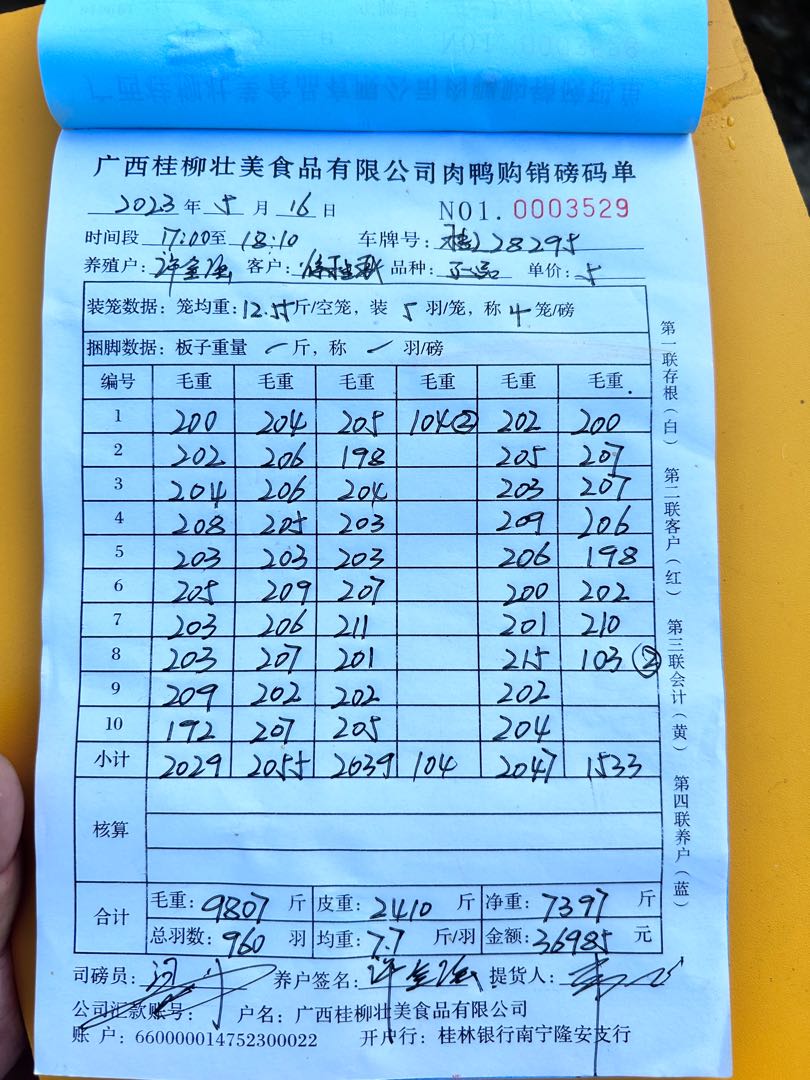 广西桂柳壮美食品有限公司肉鸭购销磅码单
2023 年 5 月 16 日 NO1. 0003529
时间段 17:00 至 18:10 车牌号: 桂 28295
养殖户: 许金强 客户: 品种: 单价: 5
装笼数据: 笼均重: 12.55 斤/空笼, 装 5 羽/笼, 称 4 笼/磅
捆脚数据: 板子重量 斤, 称 羽/磅
编号 毛重 毛重 毛重 毛重 毛重 毛重
1 200 204 205 104② 202 200
2 202 206 198 205 207
3 204 206 204 203 207
4 208 205 203 209 206
5 203 203 203 206 198
6 205 209 207 200 202
7 203 206 211 201 210
8 203 207 201 215 103②
9 209 202 202 202
10 192 207 205 204
小计 2029 2055 2039 104 2047 1533
核算
合计 毛重: 9807 斤 皮重: 2410 斤 净重: 7397 斤
总羽数: 960 羽 均重: 7.7 斤/羽 金额: 36985 元
司磅员: 养户签名: 许金强 提货人:
公司汇款账号: 户名: 广西桂柳壮美食品有限公司
账户: 660000014752300022 开户行: 桂林银行南宁隆安支行
第一联存根(白) 第二联客户(红) 第三联会计(黄) 第四联养户(蓝)